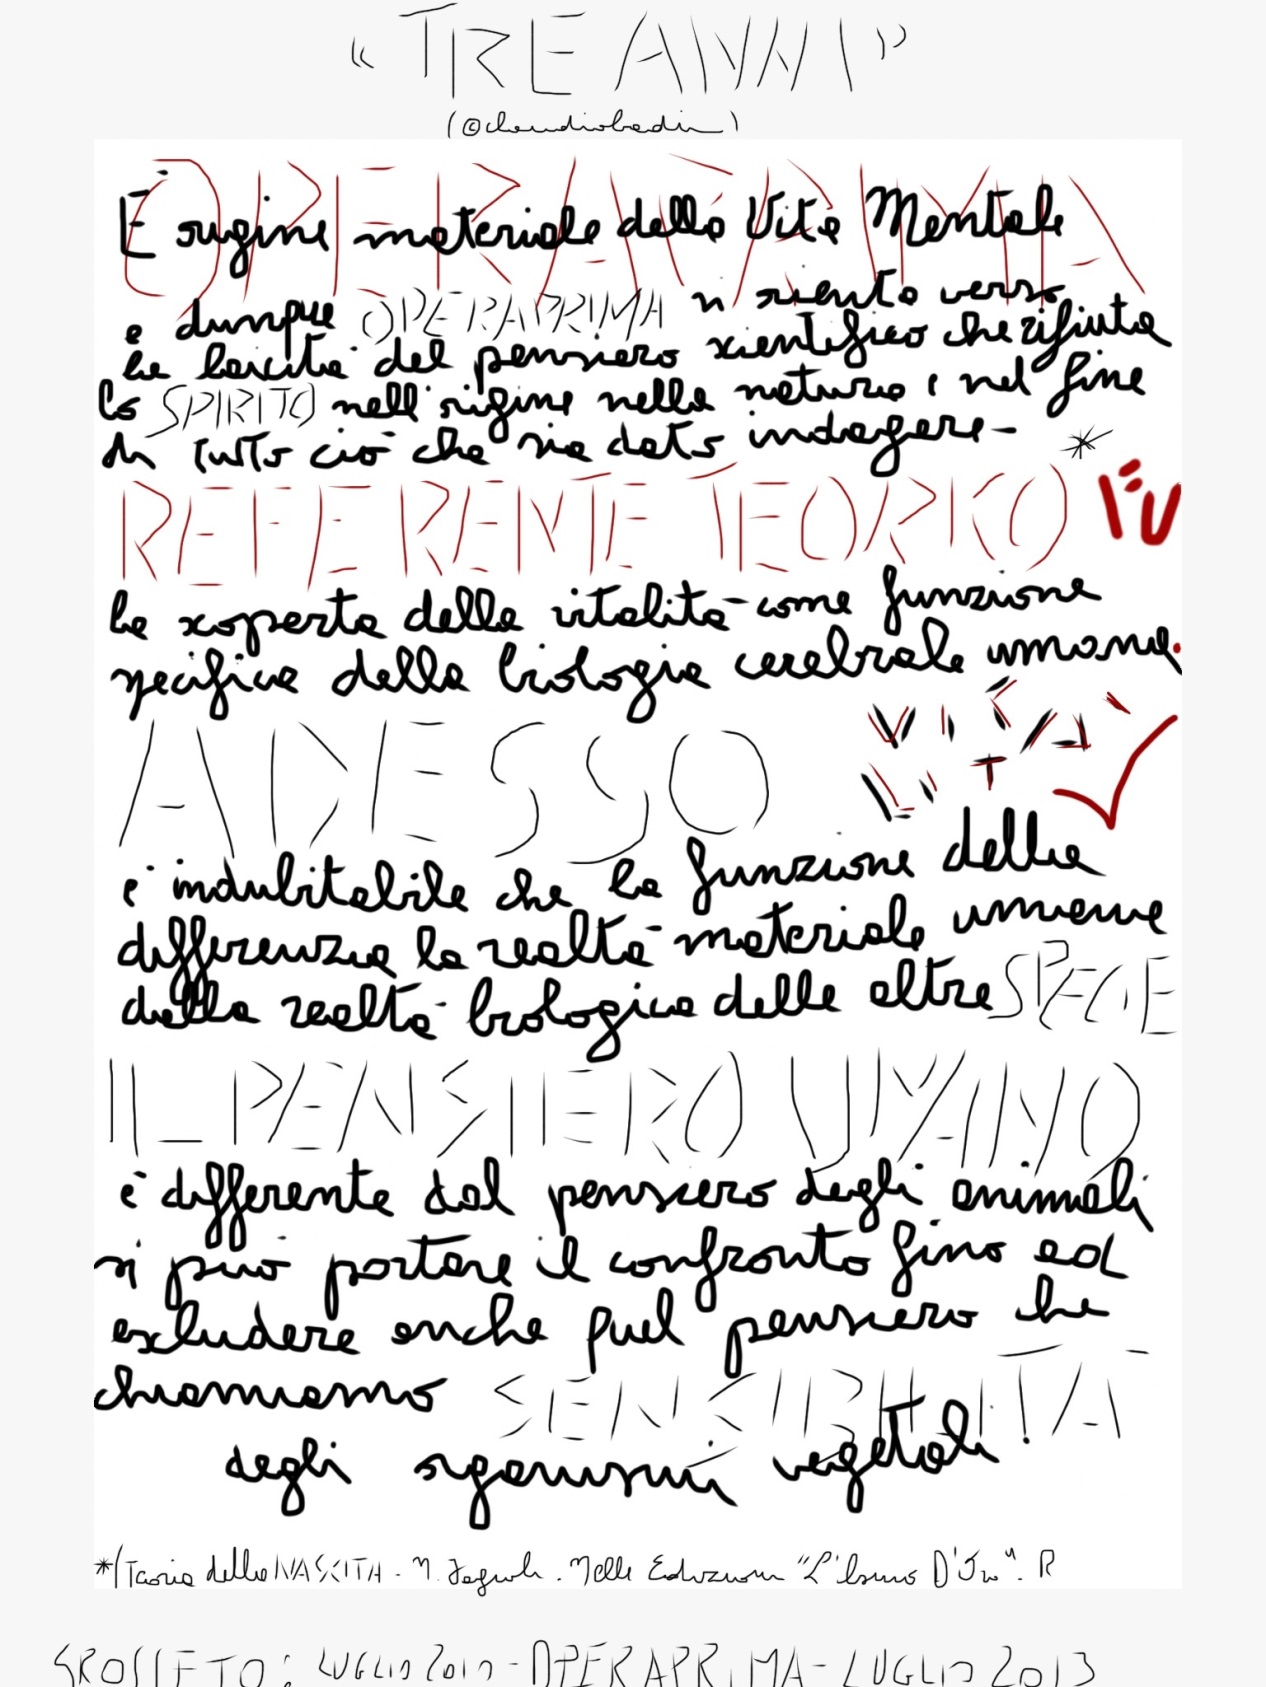 "TRE ANNI"
(©claudiobadii)
OPERAPRIMA
È origine materiale della Vita Mentale
e dunque OPERAPRIMA si sente verso
la laicità del pensiero scientifico che rifiuta
lo SPIRITO nell'origine nella natura e nel fine
di tutto ciò che sia dato indagare— *
REFERENTE TEORICO
la scoperta della vitalità come funzione
specifica della biologia cerebrale umana.
ADESSO
è indubitabile che la funzione della
differenzia la realtà materiale umana
dalla realtà biologica delle altre SPECIE
IL PENSIERO UMANO
è differente dal pensiero degli animali
si può portare il confronto fino ad
escludere anche quel pensiero che
chiamiamo SENSIBILITÀ
degli organismi vegetali.
*/Teoria della NASCITA - M. Fagioli - Nelle Edizioni "L'Asino D'Oro". R
GROSSETO: LUGLIO 2010 - OPERAPRIMA - LUGLIO 2013